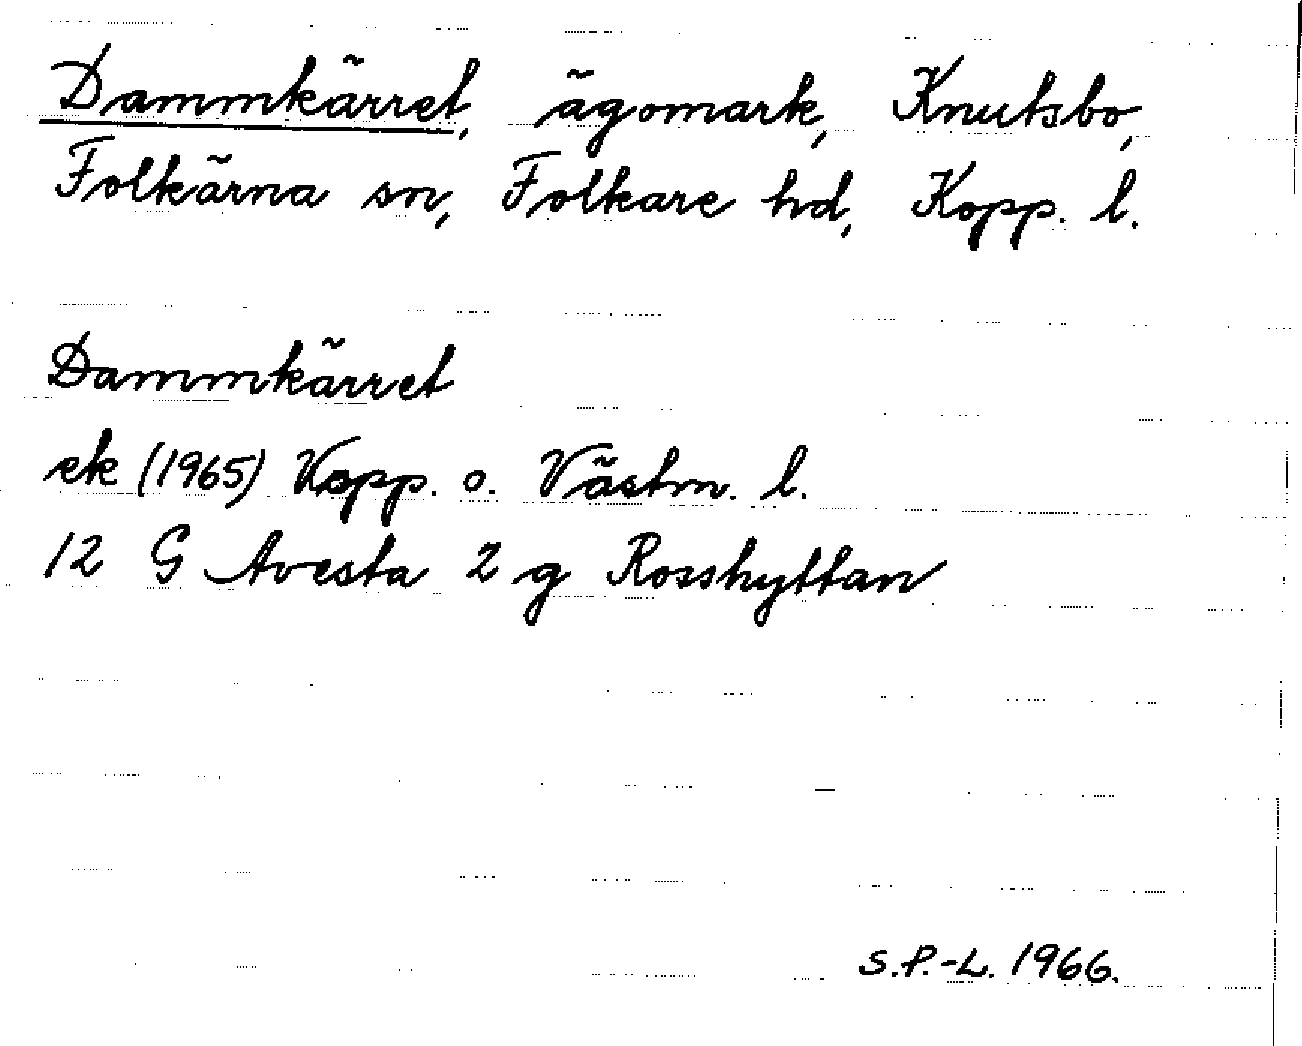 Dammkärret, ägomark, Knutsbo,
Folkärna sn, Folkare hd, Kopp. l.
Dammkärret
ek (1965) Kopp. o. Västm. l.
12 G Avesta 2 g Rosshyttan
S.P.-L. 1966.